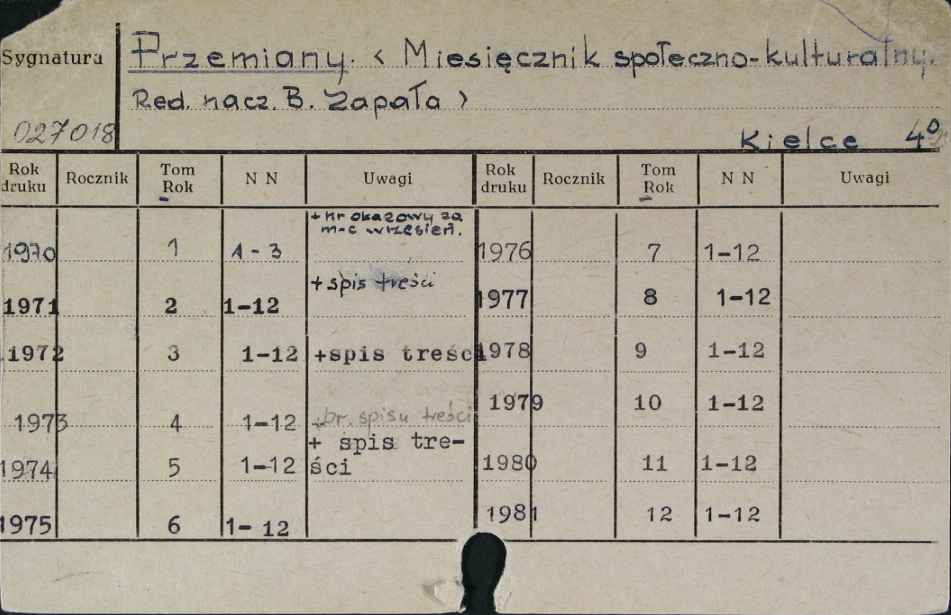 Sygnatura
Przemiany. < Miesięcznik społeczno-kulturalny.
Red. nacz. B. Zapała >
027018
Kielce 4º
Rok druku Rocznik Tom Rok N N Uwagi Rok druku Rocznik Tom Rok N N Uwagi
+ nr okazowy za
m-c wrzesień.
1970 1 1-3 1976 7 1-12
+ spis treści
1971 2 1-12 1977 8 1-12
1972 3 1-12 +spis treśc 1978 9 1-12
1979 10 1-12
1973 4 1-12 br. spisu treści
+ spis tre-
1974 5 1-12 ści 1980 11 1-12
1975 6 1-12 1981 12 1-12